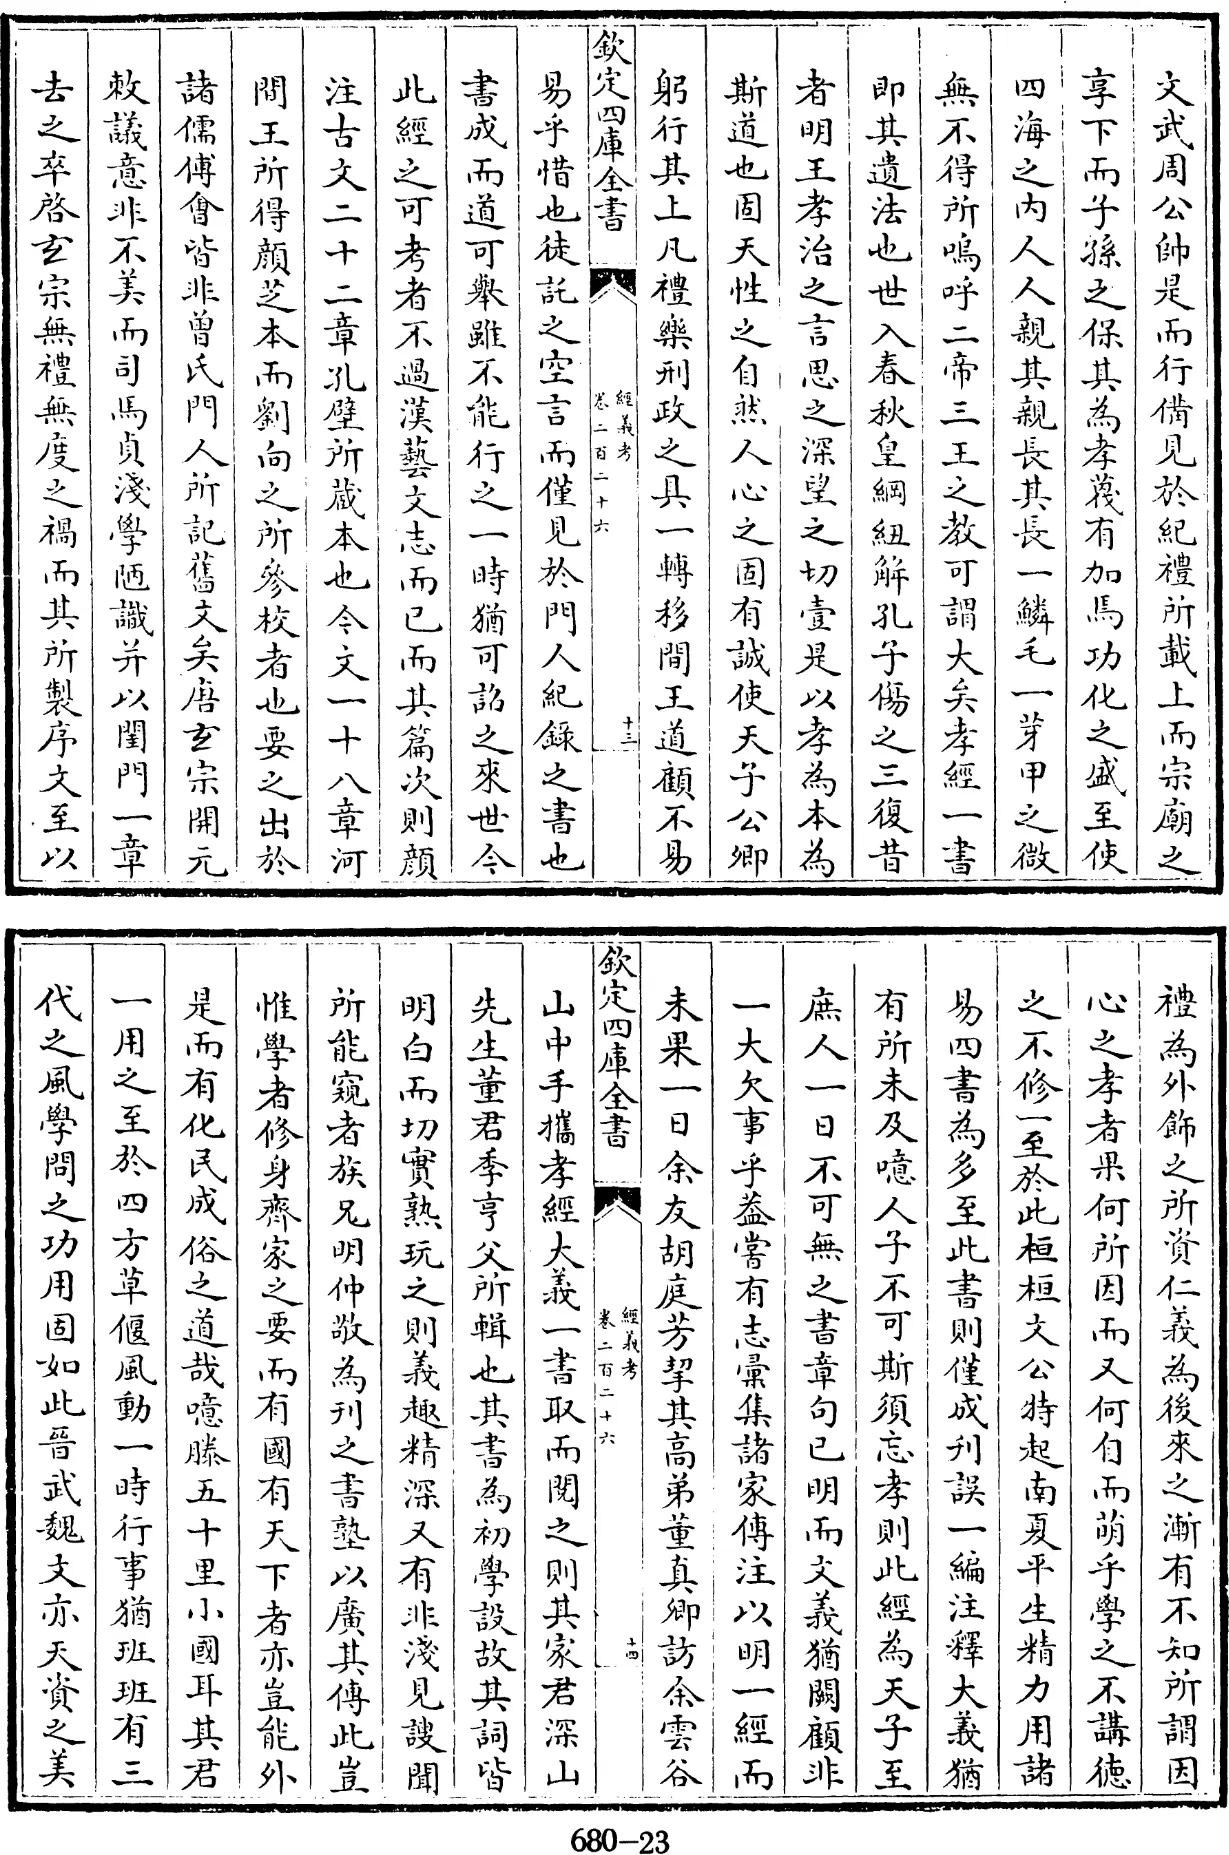 文武周公帥是而行備見於紀禮所載上而宗廟之
享下而子孫之保其為孝蓋有加焉功化之盛至使
四海之内人人親其親長其長一鱗毛一芽甲之微
無不得所嗚呼二帝三王之教可謂大矣孝經一書
即其遺法也世入春秋皇綱紐解孔子傷之三復昔
者明王孝治之言思之深望之切壹是以孝為本為
斯道也固天性之自然人心之固有誠使天子公卿
躬行其上凡禮樂刑政之具一轉移間王道顧不易
欽定四庫全書
經義考
卷二百二十六
十三
易乎惜也徒託之空言而僅見於門人紀錄之書也
書成而道可舉雖不能行之一時猶可詔之來世今
此經之可考者不過漢藝文志而已而其篇次則顔
注古文二十二章孔壁所蔵本也今文一十八章河
間王所得顔芝本而劉向之所參校者也要之出於
諸儒傅會皆非曽氏門人所記舊文矣唐玄宗開元
敕議意非不美而司馬貞淺學陋識并以閨門一章
去之卒啓玄宗無禮無度之禍而其所製序文至以
禮為外飾之所資仁義為後來之漸有不知所謂因
心之孝者果何所因而又何自而萌乎學之不講德
之不修一至於此桓桓文公特起南夏平生精力用諸
易四書為多至此書則僅成刋誤一編注釋大義猶
有所未及噫人子不可斯須忘孝則此經為天子至
庶人一日不可無之書章句已明而文義猶闕顧非
一大欠事乎葢嘗有志彙集諸家傳注以明一經而
未果一日余友胡庭芳挈其高弟董真卿訪余雲谷
欽定四庫全書
經義考
卷二百二十六
十四
山中手攜孝經大義一書取而閱之則其家君深山
先生董君季亨父所輯也其書為初學設故其詞皆
明白而切實熟玩之則義趣精深又有非淺見謏聞
所能窺者族兄明仲敬為刊之書塾以廣其傳此豈
惟學者修身齊家之要而有國有天下者亦豈能外
是而有化民成俗之道哉噫滕五十里小國耳其君
一用之至於四方草偃風動一時行事猶班班有三
代之風學問之功用固如此晉武魏文亦天資之美
680-23